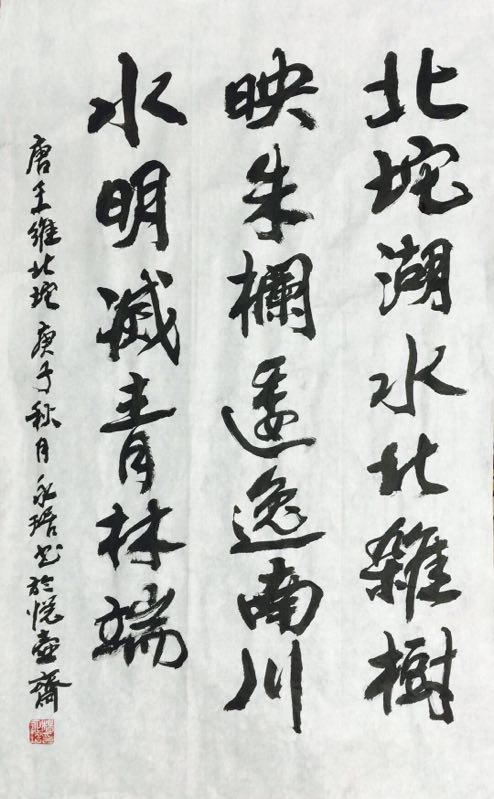 北坨湖水北雜樹
映朱欄逶逸南川
水明滅青林端
唐王維北坨 庚子秋月永书於悦壶齋